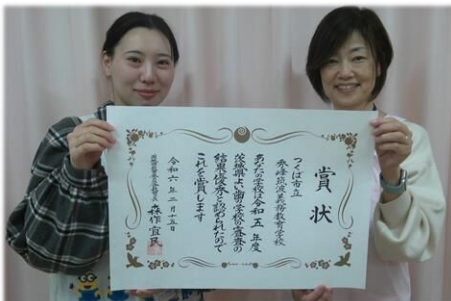 賞状
つくば市立
秀峰筑波義務教育学校
あなたの学校は令和五年度
茨城県よい歯の学校の審査の
結果優秀と認められたので
これを賞します
令和六年二月十五日
森作宜民